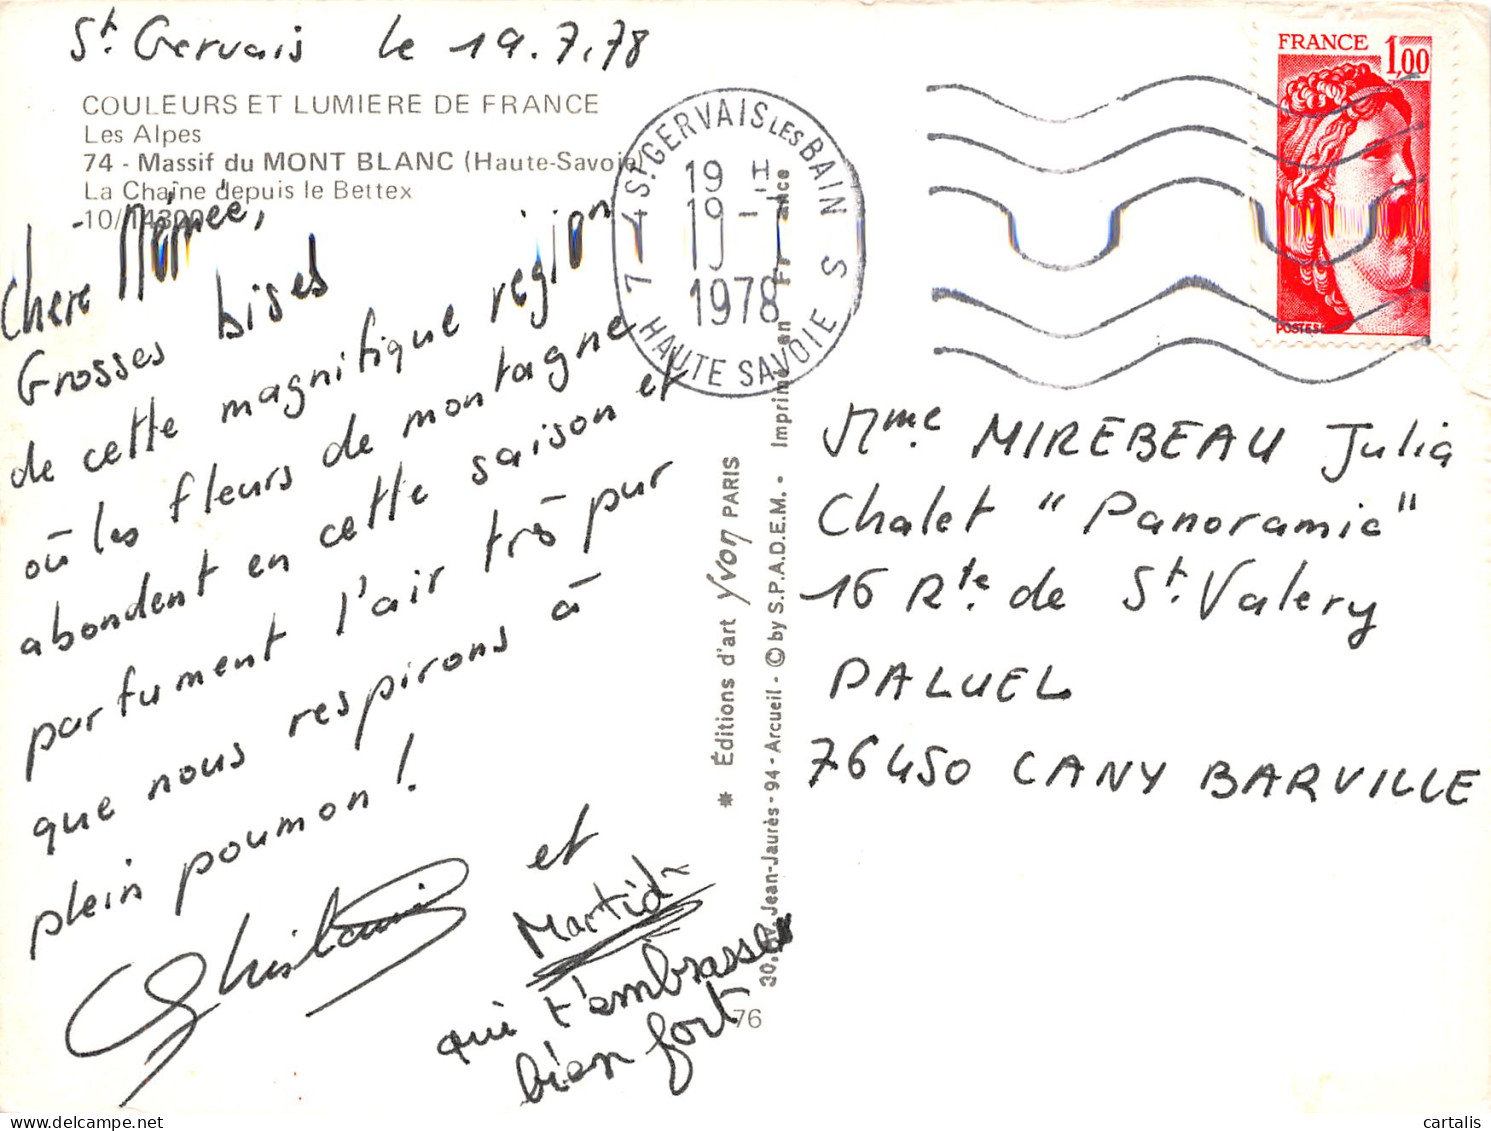 St. Gervais le 19.7.78
COULEURS ET LUMIERE DE FRANCE
Les Alpes
74 - Massif du MONT BLANC (Haute-Savoie)
La Chaîne depuis le Bettex
Chère Mémée,
Grosses bises
de cette magnifique région
où les fleurs de montagne
abondent en cette saison et
parfument l'air très pur
que nous respirons à
plein poumon !
Ghislaine
et
qui t'embrasse
bien fort
74 ST GERVAIS LES BAINS
19 H
19 - 7
1978
HAUTE SAVOIE
FRANCE 1,00
POSTES
* Éditions d'art Yvon PARIS
30, Av. Jean-Jaurès - 94 - Arcueil - © by S.P.A.D.E.M. - Imprimé en France
76
Mme MIREBEAU Julia
Chalet "Panoramic"
16 Rte. de St. Valery
PALUEL
76450 CANY BARVILLE
cartalis